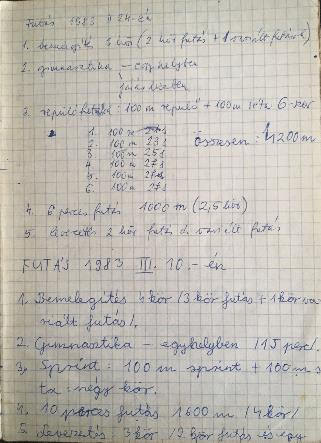 Futás 1983 II 24-én
1. bemelegítés 3 kör (2 kör futás + 1 variált futás)
2. gimnasztika - egyhelyben
futás közben
3. repülő futás: 100 m repülő + 100 m séta 6-szor
1. 100 m
2. 100 m 23 s
3. 100 m 25 s
4. 100 m 27 s
5. 100 m
6. 100 m 27 s
Összesen: 1200 m
4. 6 perces futás 1000 m (2,5 kör)
5. levezetés 2 kör futás és variált futás
FUTÁS 1983 III. 10.-én
1. Bemelegítés 4 kör /3 kör futás + 1 kör va
riált futás/.
2. Gimnasztika - egyhelyben /15 perc/.
3. Sprint: 100 m sprint + 100 m s
ta: négy kör.
4. 10 perces futás 1600 m /4 kör/
5. Levezetés: 3 kör /2 kör futás és egy